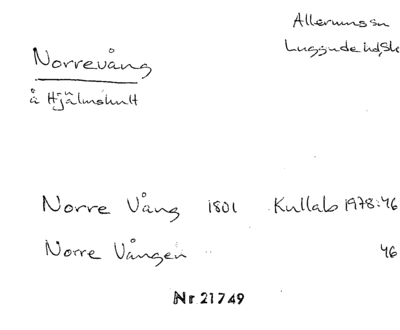 Allerums sn
Norrevång
Luggude hd, Sk
å Hjälmshult
Norre Vång 1801 Kullabs 1978:46
Norre Vången " 46
Nr. 21749